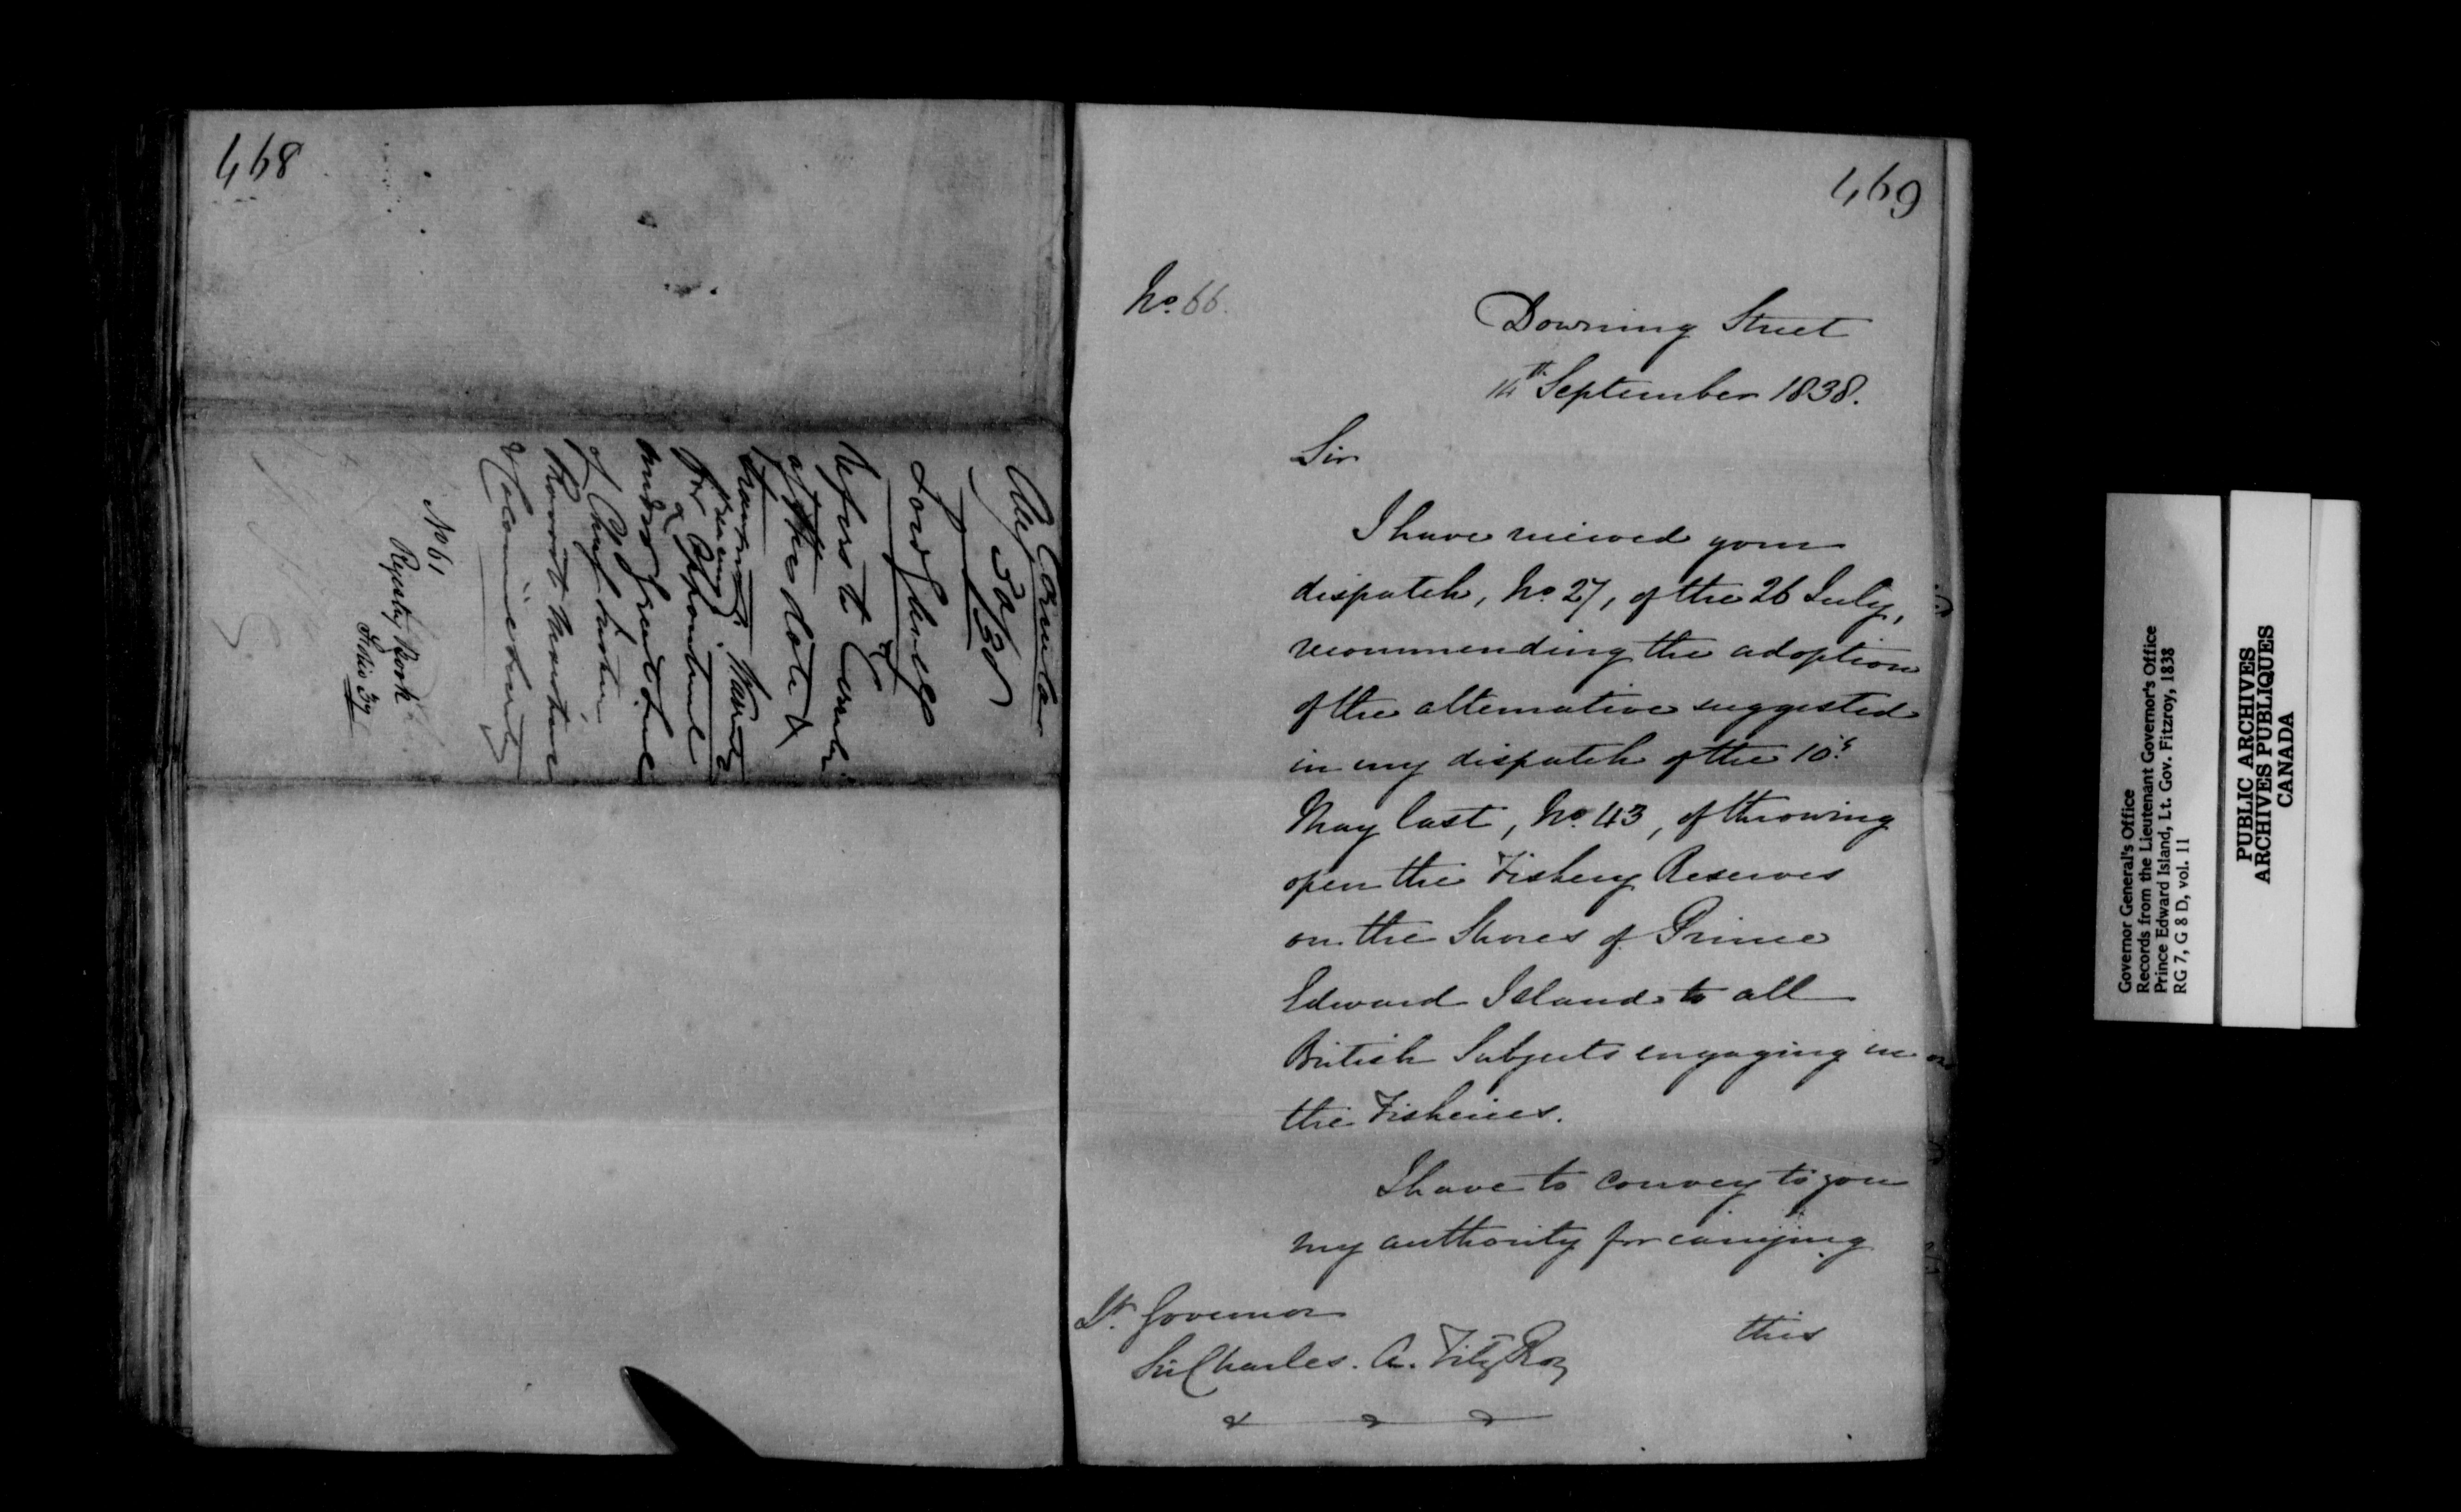 468
Circular
Aug 30/38
Lord Glenelg
Refers to Circular
of the date &
for Appointment
under Great Seal
of Chief Justice
No 61
Registry Book
Folio 39
469
No. 66.
Downing Street
14th September 1838.
Sir
I have received your
dispatch, No. 27, of the 26 July,
recommending the adoption
of the alternative suggested
in my dispatch of the 10th
May last, No. 43, of throwing
open the Fishery Reserves
on the Shores of Prince
Edward Island to all
British Subjects engaging in
the Fisheries.
I have to convey to you
my authority for carrying
this
Lt. Governor
Sir Charles. A. FitzRoy
Governor General's Office
Records from the Lieutenant Governor's Office
Prince Edward Island, Lt. Gov. Fitzroy, 1838
RG 7, G 8 D, vol. 11
PUBLIC ARCHIVES
ARCHIVES PUBLIQUES
CANADA